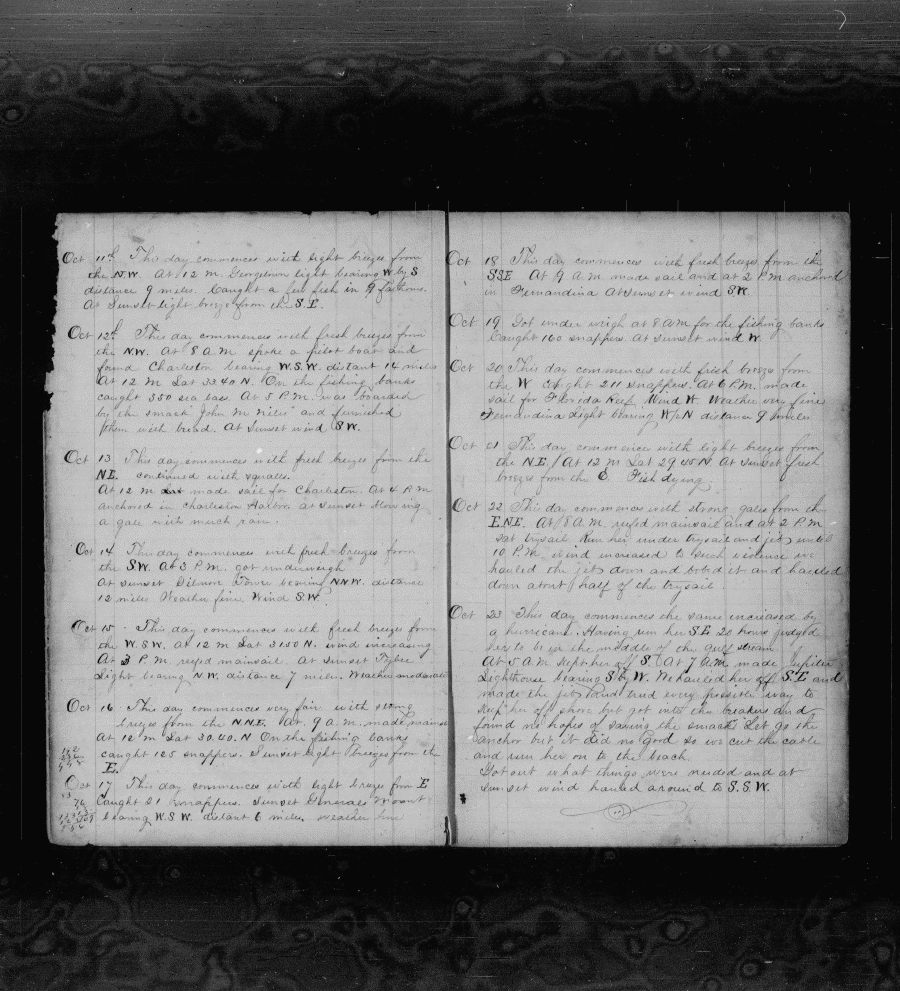 Oct 11th This day commences with light breezes from
the N.W. At 12 M Georgetown light bearing W by S
distance 9 miles. Caught a few fish in 9 fathoms.
At Sunset light breeze from the S.E.
Oct 12th This day commences with fresh breezes from
the N.W. At 8 A M spoke a pilot boat and
found Charleston bearing W.S.W. distant 14 miles
At 12 M Lat 33 40 N. On the fishing banks
caught 350 sea bass. At 5 P.M. was boarded
by the smack John M Niles and furnished
them with bread. At Sunset wind SW.
Oct 13 This day commences with fresh breezes from the
NE. continued with squalls.
At 12 M made sail for Charleston. At 4 P M
anchored in Charleston Harbor at Sunset blowing
a gale with much rain.
Oct 14 This day commences with fresh breezes from
the SW. At 3 P.M. got underweigh
At Sunset bearing N.N.W. distance
12 miles Weather fine, Wind S.W.
Oct 15 This day commences with fresh breezes from
the W.S.W. At 12 M Lat 31 50 N. wind increasing
At 3 P M. reefed mainsail. At Sunset Tybee
Light bearing N.W. distance 7 miles. Weather moderate
Oct 16 This day commences very fair with strong
breezes from the N.N.E. At 9 a.m. made
At 12 M Lat 30.40. N On the fishing banks
caught 125 snappers. Sunset light breezes from the
E.
Oct 17 This day commences with light breezes from E
Caught 21 snappers. Sunset Generals Mount
bearing W.S.W. distant 6 miles. weather fine
Oct 18 This day commences with fresh breeze from the
SSE At 9 A.M. made sail and at 2 P.M anchored
in Fernandina At Sunset wind SW.
Oct 19 Got under weigh at 8 A M for the fishing banks
Caught 160 snappers. At Sunset wind W
Oct 20 This day commences with fresh breezes from
the W Caught 211 snappers. At 6 P.M. made
sail for Florida Reef. Wind W. Weather very fine
Fernandina Light bearing W/N distance 9 miles
Oct 21 This day commences with light breezes from
the N.E. At 12 M Lat 29 40 N. At Sunset fresh
breezes from the E. Fish dying
Oct 22 This day commences with strong gales from the
E.N.E. At 8 A.M. reefed mainsail and at 2 P.M
sat trysail. Run her under trysail and jib until
10 P.M, wind increased to such violence we
hauled the jib down and bobed it and hauled
down about half of the trysail.
Oct 23 This day commences the same increased by
a hurricane. Having run her SE 20 hours judged
her to be in the middle of the gulf stream
At 5 A M kept her off S. At 7 A.M. made Jupiter
Lighthouse bearing S by W. We hauled her off S.E and
made the jib and tried every possible way to
keep her off shore but got into the breakers and
found no hopes of saving the smack. Let go the
anchor but it did no good so we cut the cable
and run her on to the beach.
Got out what things were needed and at
Sunset wind hauled around to S.S.W.